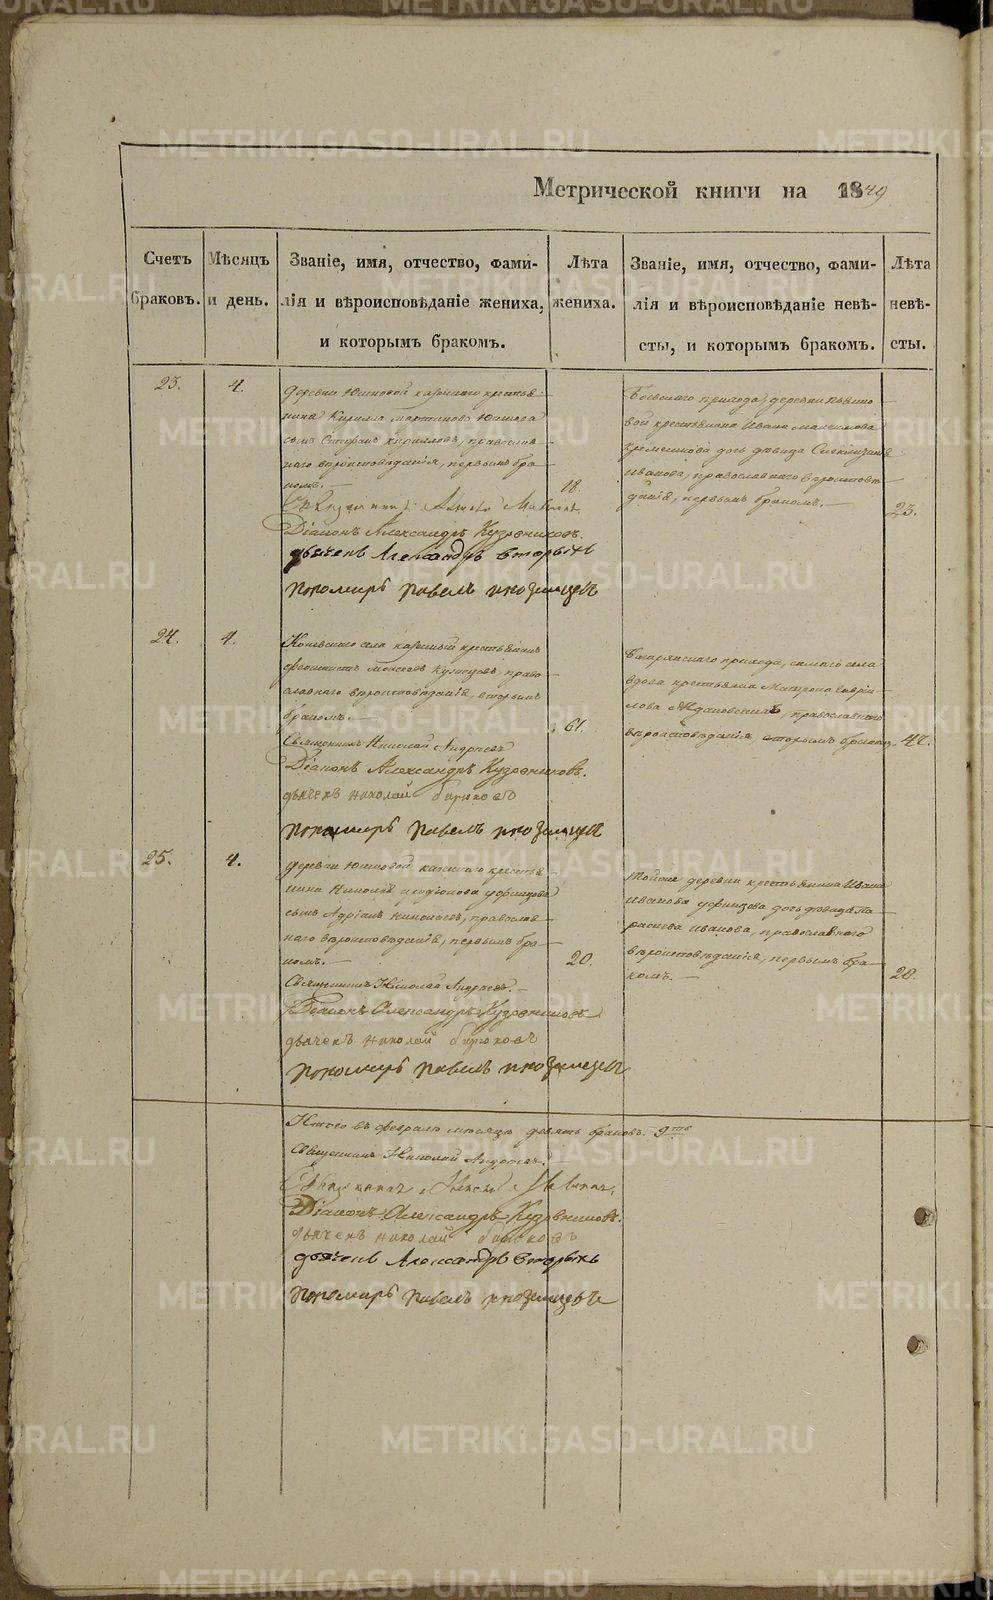 Метрической книги на 1849
Счетъ браковъ.
Мѣсяцъ и день.
Званіе, имя, отчество, фами-
лія и вѣроисповѣданіе жениха,
и которымъ бракомъ.
Лѣта жениха.
Званіе, имя, отчество, фами-
лія и вѣроисповѣданіе невѣ-
сты, и которымъ бракомъ.
Лѣта невѣ-
сты.
23.
4.
деревни Юшковой казеннаго крестья-
нина Кирилла Мартинова
сынъ Стефанъ Кирилловъ, православ-
наго вѣроисповѣданія, первымъ бра-
комъ.
18.
Діаконъ Александръ Кузовниковъ.
дьячекъ Александръ Вторыхъ
Пономарь Павелъ Иноземцевъ
прихода, деревни
вой крестьянина Ивана Максимова
дочь дѣвица
Иванова, православнаго вѣроисповѣ-
данія, первымъ бракомъ.
23.
24.
4.
села казенный крестьянинъ
Моисеевъ Кузнецовъ, право-
славнаго вѣроисповѣданія, вторымъ
бракомъ.
61.
Священникъ Николай Андреевъ
Діаконъ Александръ Кузовниковъ.
дьячекъ Николай Бирюковъ
Пономарь Павелъ Иноземцевъ
Багарякскаго прихода, самаго села
вдова крестьянка Матрона Гаврии-
лова Ждановскихъ, православнаго
вѣроисповѣданія, вторымъ бракомъ.
42.
25.
4.
деревни Юшковой казеннаго крестья-
нина Николая Уфинцова
сынъ Адріанъ Николаевъ, православ-
наго вѣроисповѣданія, первымъ бра-
комъ.
20.
Священникъ Николай Андреевъ.
Діаконъ Александръ Кузовниковъ
дьячекъ Николай Бирюковъ
Пономарь Павелъ Иноземцевъ
Той же деревни крестьянина Ивана
Иванова Уфинцова дочь дѣвица Па-
расковья Иванова, православнаго
вѣроисповѣданія, первымъ бра-
комъ.
20.
Итого въ февралѣ мѣсяцѣ девять браковъ. 9ть
Священникъ Николай Андреевъ.
Діаконъ Александръ Кузовниковъ.
дьячекъ Николай Бирюковъ
дьячекъ Александръ Вторыхъ
Пономарь Павелъ Иноземцевъ
METRIKI.GASO-URAL.RU